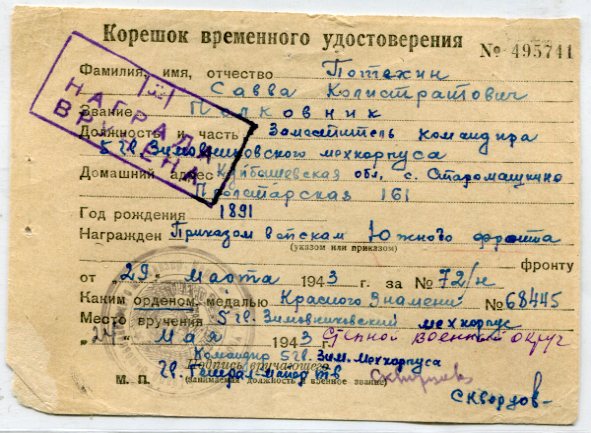 Корешок временного удостоверения № 495741
Фамилия, имя, отчество Потехин
Савва Калистратович
Звание Полковник
НАГРАДА
ВРУЧЕНА
Должность и часть Заместитель командира
5 Гв. Зимовниковского мехкорпуса
Домашний адрес Куйбышевская обл, с. Старомашкино
Пролетарская 161
Год рождения 1891
Награжден Приказом войскам Южного фронта
(указом или приказом)
фронту
от „29" марта 1943 г. за № 72/н
Каким орденом, медалью Красного Знамени № 68445
Место вручения 5 Гв. Зимовниковский мехкорпус
„24" Мая 1943 г. Степной военный округ
Командир 5 Гв. Зим. мехкорпуса
Подпись вручающего
Гв. Генерал-майор тв
М. П. (занимаемая должность и военное звание)
Скворцов